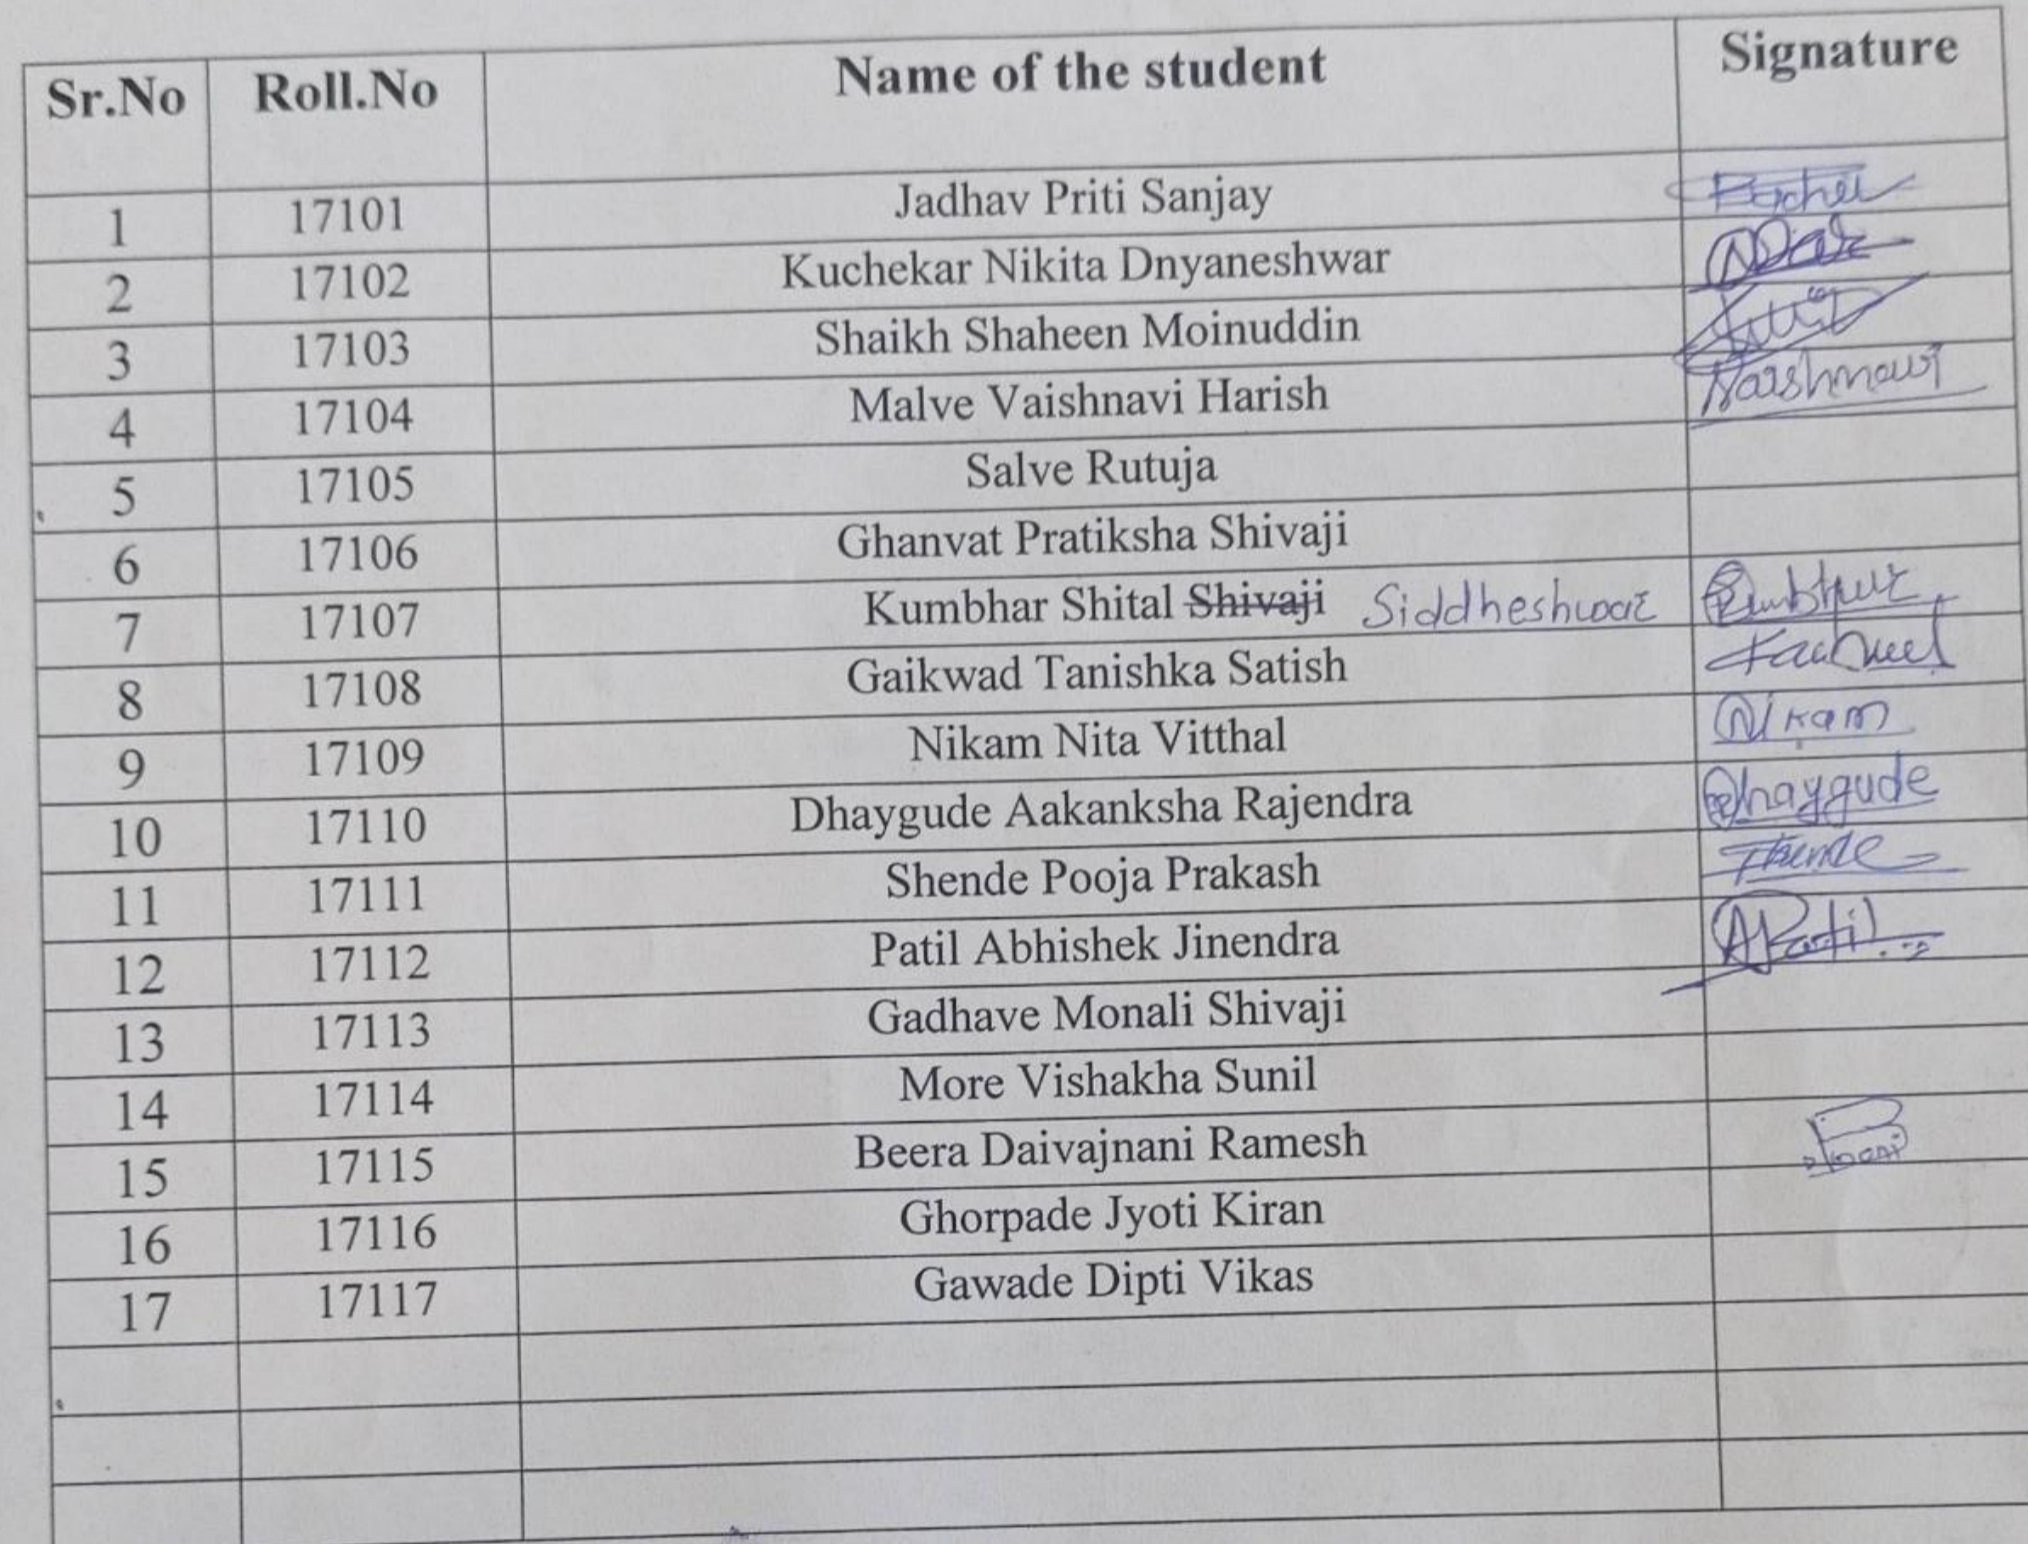 Sr.No Roll.No Name of the student Signature
1 17101 Jadhav Priti Sanjay
2 17102 Kuchekar Nikita Dnyaneshwar
3 17103 Shaikh Shaheen Moinuddin
4 17104 Malve Vaishnavi Harish Vaishnavi
5 17105 Salve Rutuja
6 17106 Ghanvat Pratiksha Shivaji
7 17107 Kumbhar Shital Shivaji Siddheshwar Kumbhar
8 17108 Gaikwad Tanishka Satish
9 17109 Nikam Nita Vitthal Nikam
10 17110 Dhaygude Aakanksha Rajendra Dhaygude
11 17111 Shende Pooja Prakash
12 17112 Patil Abhishek Jinendra APatil
13 17113 Gadhave Monali Shivaji
14 17114 More Vishakha Sunil
15 17115 Beera Daivajnani Ramesh
16 17116 Ghorpade Jyoti Kiran
17 17117 Gawade Dipti Vikas